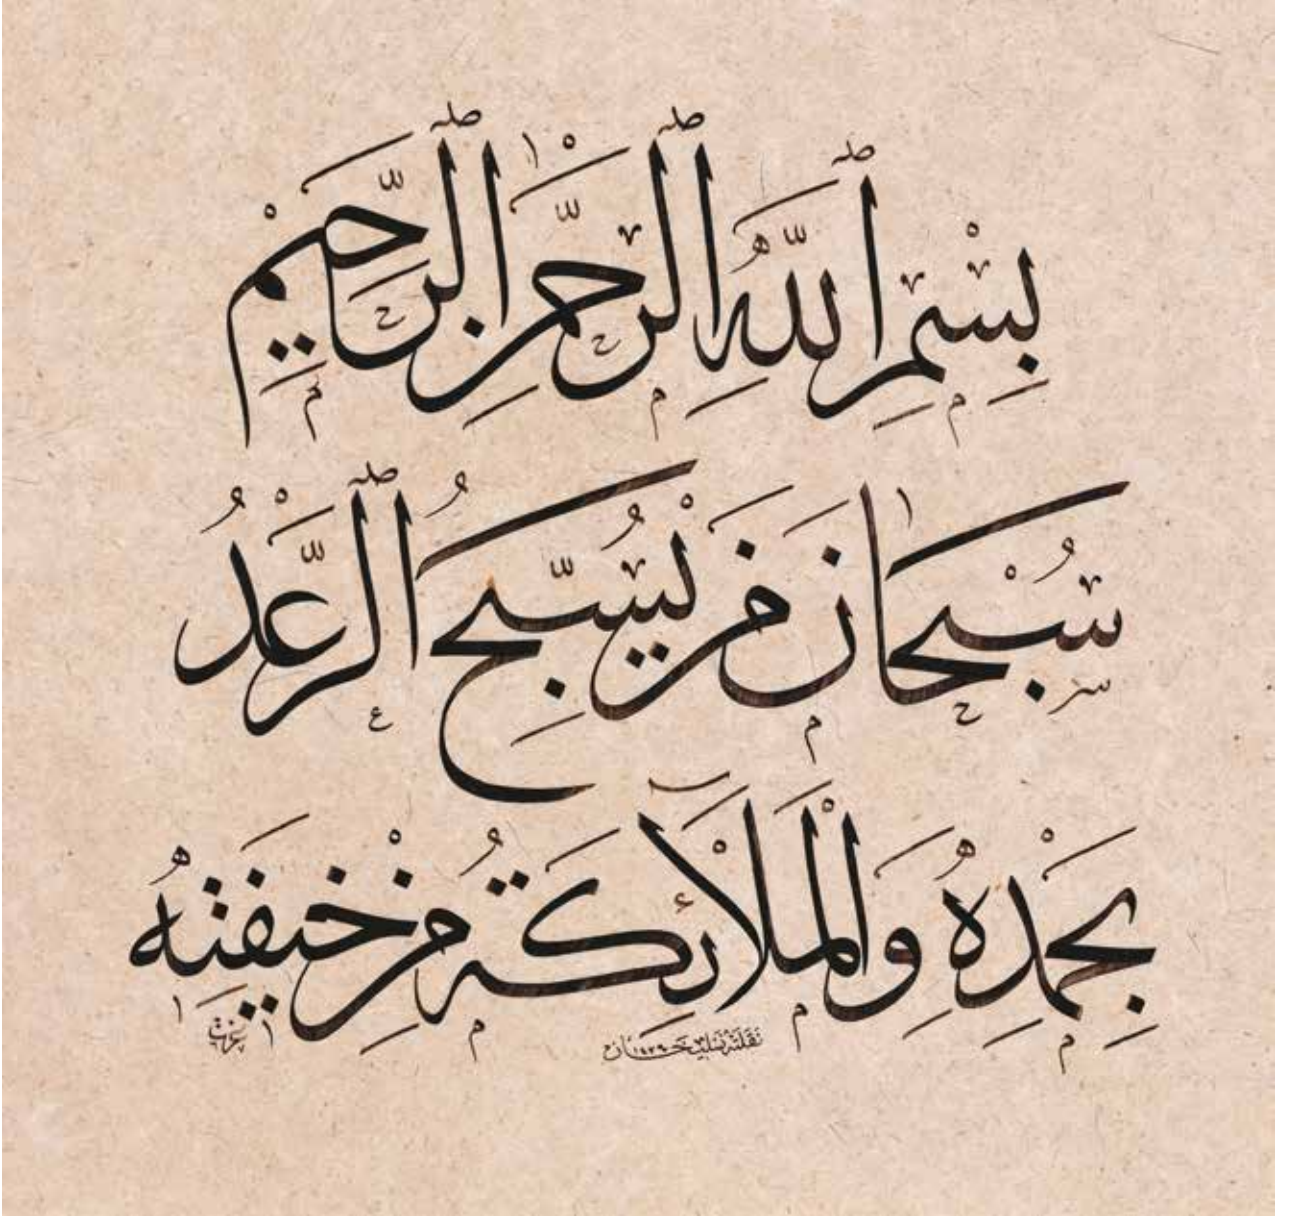 بِسْمِ ٱللَّهِ ٱلرَّحْمَٰنِ ٱلرَّحِيْمِ
سُبْحَانَ مَنْ يُسَبِّحُ ٱلرَّعْدُ
بِحَمْدِهِ وَالْمَلَائِكَةُ مِنْ خِيفَتِهِ
نقلته